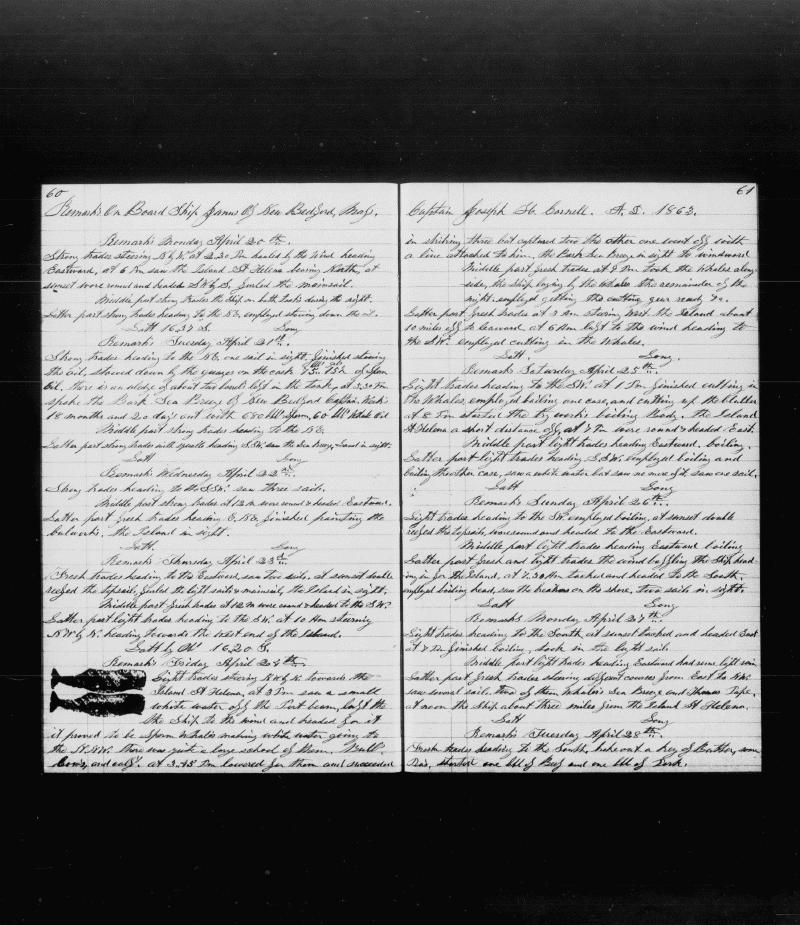 60
Remarks On Board Ship James Of New Bedford, Mass.
Remarks Monday April 20th.
Strong trades steering N by W. at 2.30 Pm hauled by the wind heading
Eastward, at 6 Pm saw the Island St Helena bearing North, at
sunset wore round and headed S.W by S. furled the mainsail.
Middle part strong trades the Ship on both tacks during the night.
Latter part strong trades heading to the N.E. employed stowing down the oil.
Latt 16.37 S. Long
Remarks Tuesday April 21st.
Strong trades heading to the N.E. one sail in sight. finished stowing
the Oil, stowed down by the gauges on the cask 93 Bbls of Sperm
Oil. there is an aledge of about two barrels left in the tank, at 3.30 Pm
spoke the Bark Sea Breeze of New Bedford Captain
18 months and 20 days out with 680 Bbls Sperm, 60 Bbls Whale Oil
Middle part strong trades heading to the N.E.
Latter part strong trades with squalls heading S.SW. saw the Sea Breeze, Land in sight.
Latt Long
Remarks Wednesday April 22nd.
Strong trades heading to the S.SW. saw three sail.
Middle part strong trades at 12 m. wore round & headed Eastward.
Latter part fresh trades heading E.NE. finished painting the
bulwarks. the Island in sight.
Latt. Long
Remarks Thursday April 23rd.
Fresh trades heading to the Eastward saw two sails, at sunset double
reefed the topsails, furled the light sails & mainsail, the Island in sight.
Middle part fresh trades at 12 M. wore round & headed to the SW.
Latter part light trades heading to the SW. at 10 Am steering
N.W by W. heading towards the West end of the Island.
Latt by Obs 16.20 S.
Remarks Friday April 24th.
Light trades steering N.W by W. towards the
Island St Helena, at 3 Pm saw a small
white water off the Port beam, luft the
the Ship to the wind and headed for it
it proved to be Sperm Whales making white water going to
the N.NW. there was quite a large school of them, Bulls
Cows, and calf. at 3.45 Pm lowered for them and succeeded
61
Captain Joseph H. Cornell. A.D. 1863.
in striking three but captured two the other one went off with
a line attached to him, the Bark Sea Breeze in sight to windward
Middle part fresh trades at 8 Pm took the Whales along
side, the Ship laying by the Whales the remainder of the
night. employd getting the cutting gear ready &c.
Latter part fresh trades at 3 Am steering West. the Island about
10 miles off to leeward, at 6 Am luft to the wind heading to
the SW. employed cutting in the Whales.
Latt. Long.
Remarks Saturday April 25th.
Light trades heading to the SW. at 1 Pm finished cutting in
the Whales, employed bailing one case, and cutting up the blubber
at 8 Pm started the try works boiling steady. the Island
St Helena a short distance off, at 7 Pm wore round & headed East.
Middle part light trades heading Eastward, boiling.
Latter part light trades heading S.SW. employed boiling and
bailing the other case, saw a white water but saw no more of it, saw one sail.
Latt Long
Remarks Sunday April 26th.
Light trades heading to the SW. employed boiling, at sunset double
reefed the topsails, wore round and headed to the Eastward.
Middle part light trades heading Eastward boiling
Latter part fresh and light trades the wind baffling the Ship head
ing in for the Island, at 7.30 Am tacked and headed to the South,
employed boiling head, saw the breakers on the shore, two sails in sight.
Latt Long
Remarks Monday April 27th.
Light trades heading to the South, at sunset tacked and headed East
at 7 Pm finished boiling, took in the light sails
Middle part light trades heading Eastward had some light rain
Latter part fresh trades steering different courses from East to NW.
saw several sails. two of them Whalers Sea Breeze and Thomas Pope,
at noon the Ship about three miles from the Island St Helena.
Latt Long
Remarks Tuesday April 28th.
Fresh trades heading to the South, broke out a keg of Butter, some
started one Bbl of Beef and one Bbl of Pork.